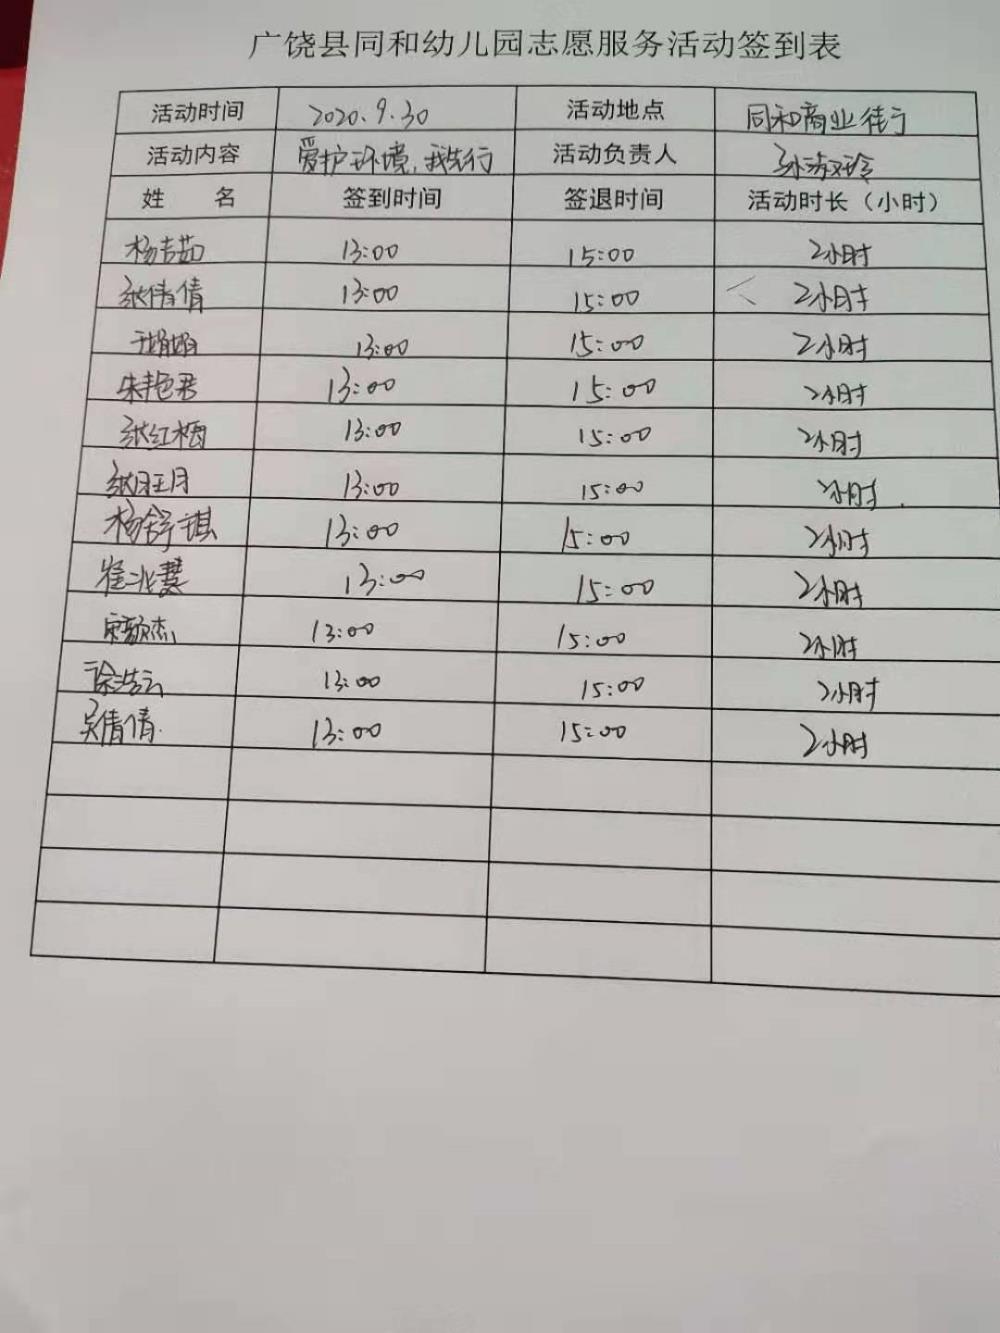 广饶县同和幼儿园志愿服务活动签到表
活动时间 2020.9.30 活动地点 同和商业街
活动内容 爱护环境,我先行 活动负责人 孙淑玲
姓 名 签到时间 签退时间 活动时长（小时）
杨吉茹 13:00 15:00 2小时
张倩倩 13:00 15:00 2小时
13:00 15:00 2小时
朱艳君 13:00 15:00 2小时
张红梅 13:00 15:00 2小时
张旺月 13:00 15:00 2小时.
杨舒琪 13:00 15:00 2小时
崔兆慧 13:00 15:00 2小时
宋颖杰 13:00 15:00 2小时
徐浩云 13:00 15:00 2小时
吴倩倩 13:00 15:00 2小时